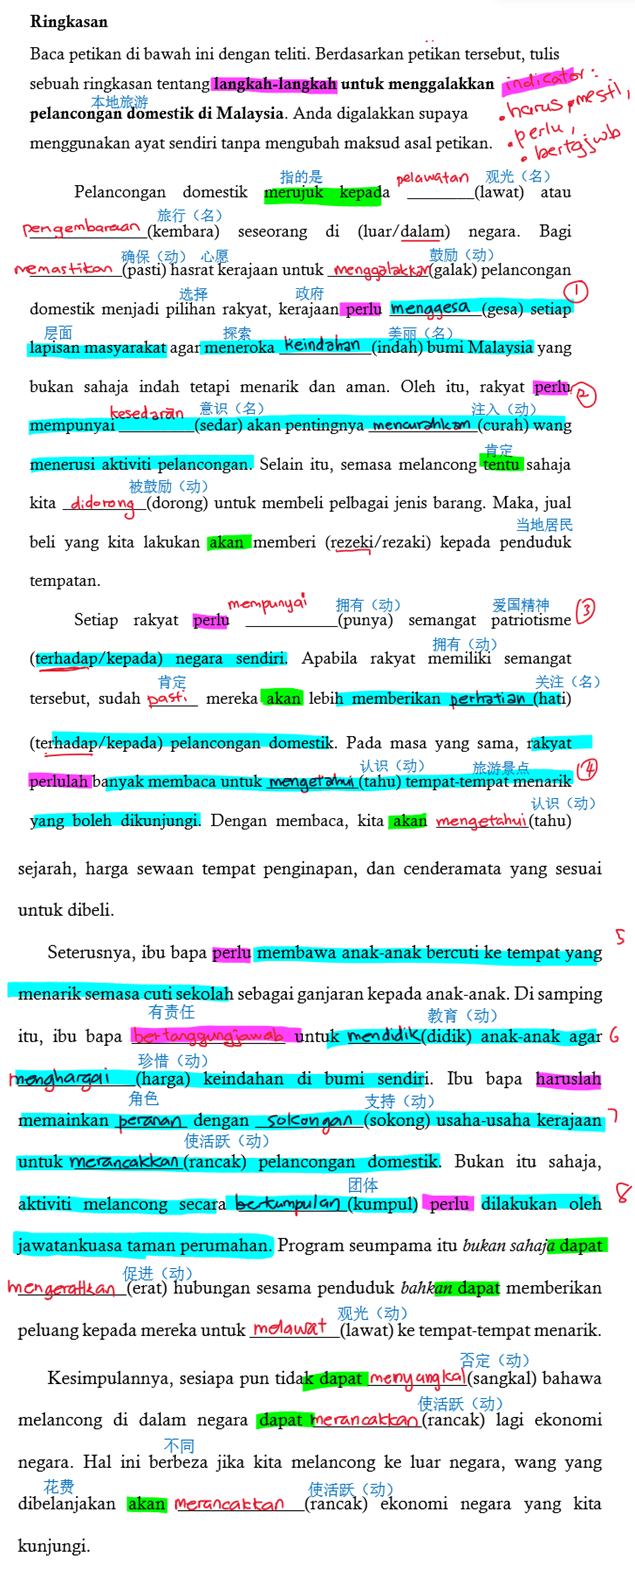 Ringkasan
Baca petikan di bawah ini dengan teliti. Berdasarkan petikan tersebut, tulis
sebuah ringkasan tentang langkah-langkah untuk menggalakkan indicator:
本地旅游
pelancongan domestik di Malaysia. Anda digalakkan supaya • harus, mesti,
menggunakan ayat sendiri tanpa mengubah maksud asal petikan. • perlu,
• bertgjwb
指的是 观光（名）
Pelancongan domestik merujuk kepada pelawatan (lawat) atau
旅行（名）
pengembaraan (kembara) seseorang di (luar/dalam) negara. Bagi
确保（动） 心愿 鼓励（动）
memastikan (pasti) hasrat kerajaan untuk menggalakkan (galak) pelancongan
选择 政府 ①
domestik menjadi pilihan rakyat, kerajaan perlu menggesa (gesa) setiap
层面 探索 美丽（名）
lapisan masyarakat agar meneroka keindahan (indah) bumi Malaysia yang
bukan sahaja indah tetapi menarik dan aman. Oleh itu, rakyat perlu ②
意识（名） 注入（动）
mempunyai kesedaran (sedar) akan pentingnya mencurahkan (curah) wang
肯定
menerusi aktiviti pelancongan. Selain itu, semasa melancong tentu sahaja
被鼓励（动）
kita didorong (dorong) untuk membeli pelbagai jenis barang. Maka, jual
当地居民
beli yang kita lakukan akan memberi (rezeki/rezaki) kepada penduduk
tempatan.
拥有（动） 爱国精神
Setiap rakyat perlu mempunyai (punya) semangat patriotisme ③
拥有（动）
(terhadap/kepada) negara sendiri. Apabila rakyat memiliki semangat
肯定 关注（名）
tersebut, sudah pasti mereka akan lebih memberikan perhatian (hati)
(terhadap/kepada) pelancongan domestik. Pada masa yang sama, rakyat
认识（动） 旅游景点 ④
perlulah banyak membaca untuk mengetahui (tahu) tempat-tempat menarik
认识（动）
yang boleh dikunjungi. Dengan membaca, kita akan mengetahui (tahu)
sejarah, harga sewaan tempat penginapan, dan cenderamata yang sesuai
untuk dibeli.
Seterusnya, ibu bapa perlu membawa anak-anak bercuti ke tempat yang 5
menarik semasa cuti sekolah sebagai ganjaran kepada anak-anak. Di samping
有责任 教育（动）
itu, ibu bapa bertanggungjawab untuk mendidik (didik) anak-anak agar 6
珍惜（动）
menghargai (harga) keindahan di bumi sendiri. Ibu bapa haruslah
角色 支持（动）
memainkan peranan dengan sokongan (sokong) usaha-usaha kerajaan 7
使活跃（动）
untuk merancakkan (rancak) pelancongan domestik. Bukan itu sahaja,
团体
aktiviti melancong secara bertumpulan (kumpul) perlu dilakukan oleh 8
jawatankuasa taman perumahan. Program seumpama itu bukan sahaja dapat
促进（动）
mengeratkan (erat) hubungan sesama penduduk bahkan dapat memberikan
观光（动）
peluang kepada mereka untuk melawat (lawat) ke tempat-tempat menarik.
否定（动）
Kesimpulannya, sesiapa pun tidak dapat menyangkal (sangkal) bahawa
使活跃（动）
melancong di dalam negara dapat merancakkan (rancak) lagi ekonomi
不同
negara. Hal ini berbeza jika kita melancong ke luar negara, wang yang
花费 使活跃（动）
dibelanjakan akan merancakkan (rancak) ekonomi negara yang kita
kunjungi.